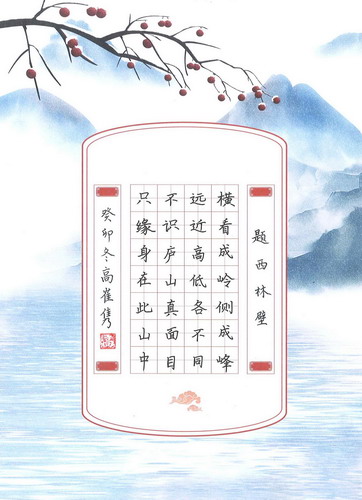 题西林壁
横看成岭侧成峰
远近高低各不同
不识庐山真面目
只缘身在此山中
癸卯冬高崔隽